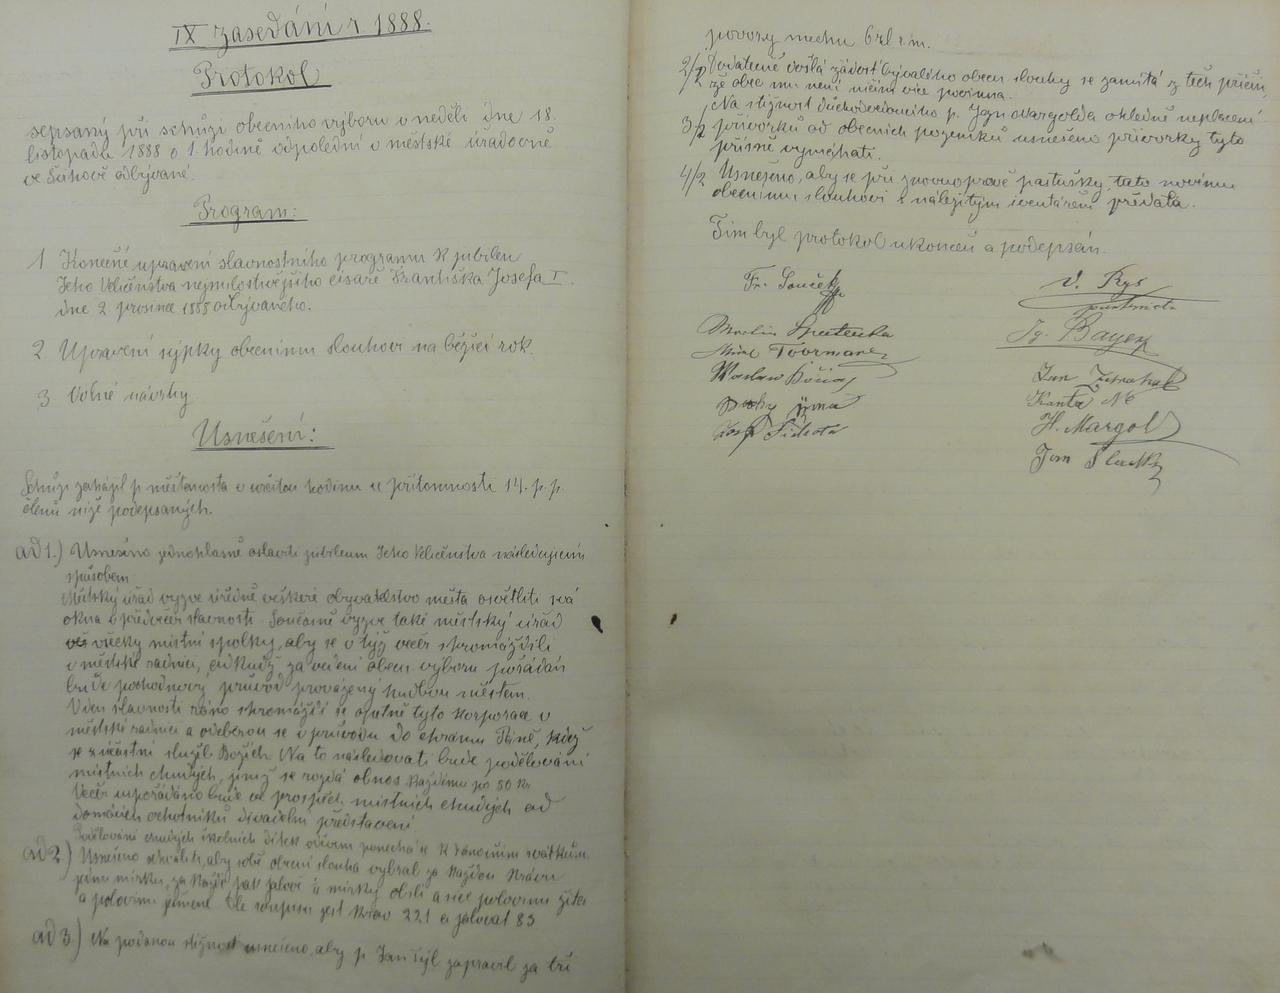 IX zasedání r 1888.
Protokol
sepsaný při schůzi obecního výboru v neděli dne 18.
listopadu 1888 o 1. hodině odpolední v městské úřadovně
ve odbývané.
Program:
1 Konečné upravení slavnostního programu k jubileu
Jeho Veličenstva nejmilostivějšího císaře Františka Josefa I.
dne 2. prosince 1888 odbývaného.
2. Upravení sýpky obecnímu slouhovi na běžící rok.
3 Volné návrhy
Usnešení:
Schůzi zahájil p měšťanosta v určitou hodinu u přítomnosti 14. p. p.
členů níže podepsaných.
ad 1.) Usnešeno jednohlasně oslaviti jubileum Jeho Veličenstva následujícím
způsobem
Městský úřad vyzve úředně veškeré obyvatelstvo města osvětliti svá
okna v předvečer slavnosti. Současně vyzve také městský úřad
všecky místní spolky, aby se v týž večer shromáždili
v městské radnici, odkudž za vedení obecn. výboru pořádán
bude pochodňový průvod provázený hudbou městem.
V den slavnosti ráno shromáždí se opětně tyto korporace v
městské radnici a odeberou se v průvodu do chrámu Páně, kdež
se zúčastní služb Božích. Na to následovati bude podělování
místních chudých, jimž se rozdá obnos každému po 50 kr
Večer uspořádáno bude ve prospěch místních chudých od
domácích ochotníků divadelní představení.
Podělování chudých školních dítek ponechá se k vánočním svátkům.
ad 2.) Usnešeno aby sobě obecní slouha vybral za každou krávu
jednu mírku, za každé pak jalové ½ mírky obilí a sice polovinu žita
a polovinu ječmene. Dle soupisu jest krav 221 a jalovat 83
ad 3.) Na podanou stížnost usnešeno, aby p Jan Týl zapravil za tři
povozy mechu 6 zl r. m.
2/2 Dodatečně došlá žádost bývalého obecn slouhy se zamítá z těch příčin,
že obec mu není ničím více povinna.
3/2 Na stížnost důchodového p. Ign Margolda ohledně neplacení
přívorků od obecních pozemků usnešeno přívorky tyto
přísně vymáhati.
4/2 Usnešeno, aby se při znovuopravě pastušky, tato novému
obecnímu slouhovi s náležitým inventářem předala.
Tím byl protokol ukončen a podepsán.
Fr. Souček
V. Rys
purkmistr
Martin
Ig. Bayer
Jan
Kanta
H. Margold
Josef
Jan